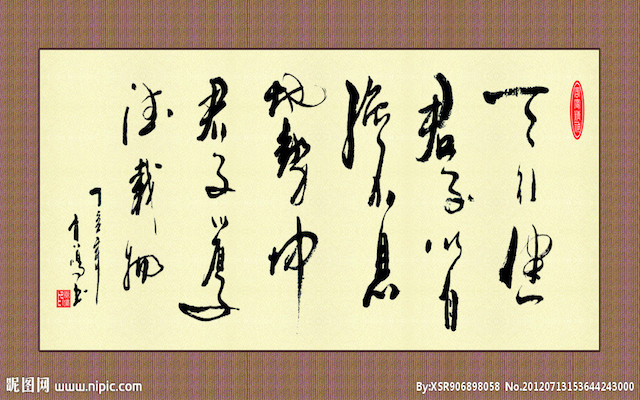 天行健
君子以自
强不息
地勢坤
君子以厚
德載物
丁亥年
书
昵图网 www.nipic.com
By:XSR906898058 No.20120713153644243000